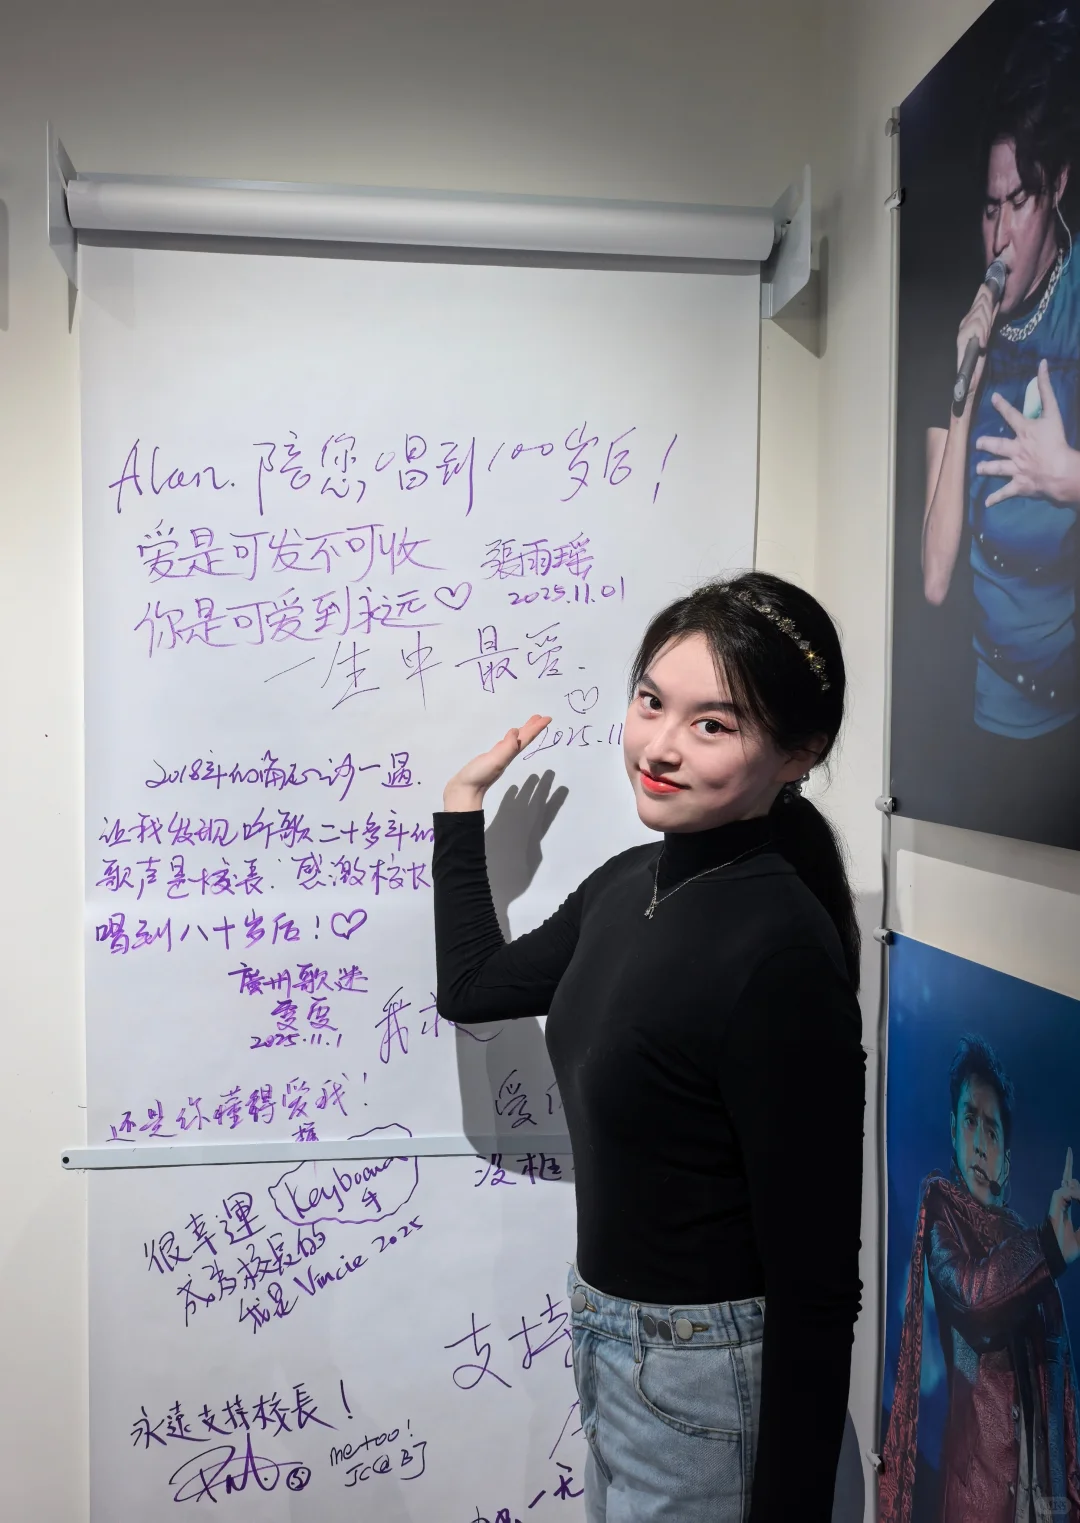 Alan.陪您唱到100岁后！
爱是可发不可收
你是可爱到永远♡
張雨瑶
2025.11.01
一生中最爱.
♡
2025.11
2018年的
一遇.
让我发现听歌二十多年的
歌声是校長.感激校长
唱到八十岁后！♡
廣州歌迷
雯雯
2025.11.1
我
爱
还是你懂得爱我！
没框
很幸運
成為校長的
Keyboard
手
我是Vincie 2025
支持
永遠支持校長！
me too!
JC@BJ
一无